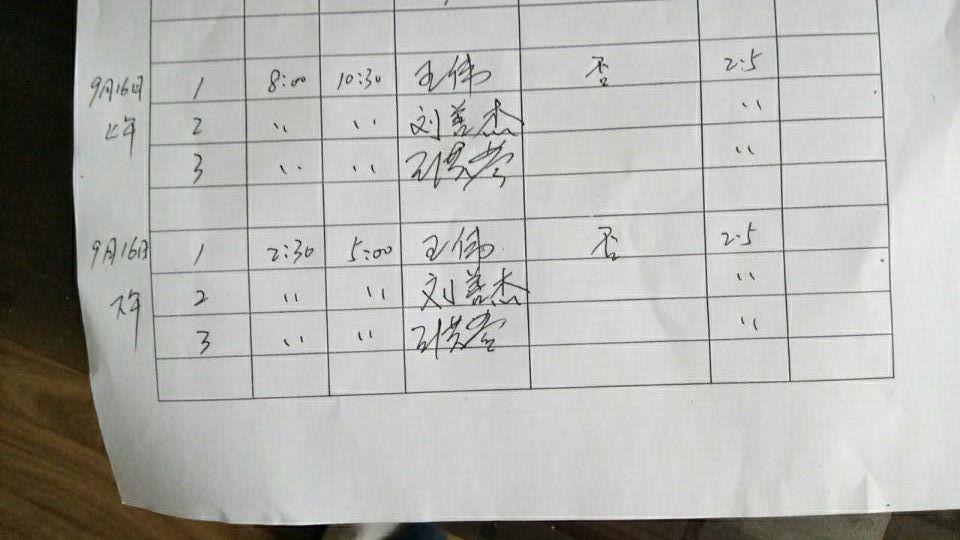 9月16日 1 8:00 10:30 王伟 否 2.5
上午 2 〃 〃 刘善杰 〃
3 〃 〃 〃
9月16日 1 2:30 5:00 王伟 否 2.5
下午 2 〃 〃 刘善杰 〃
3 〃 〃 〃